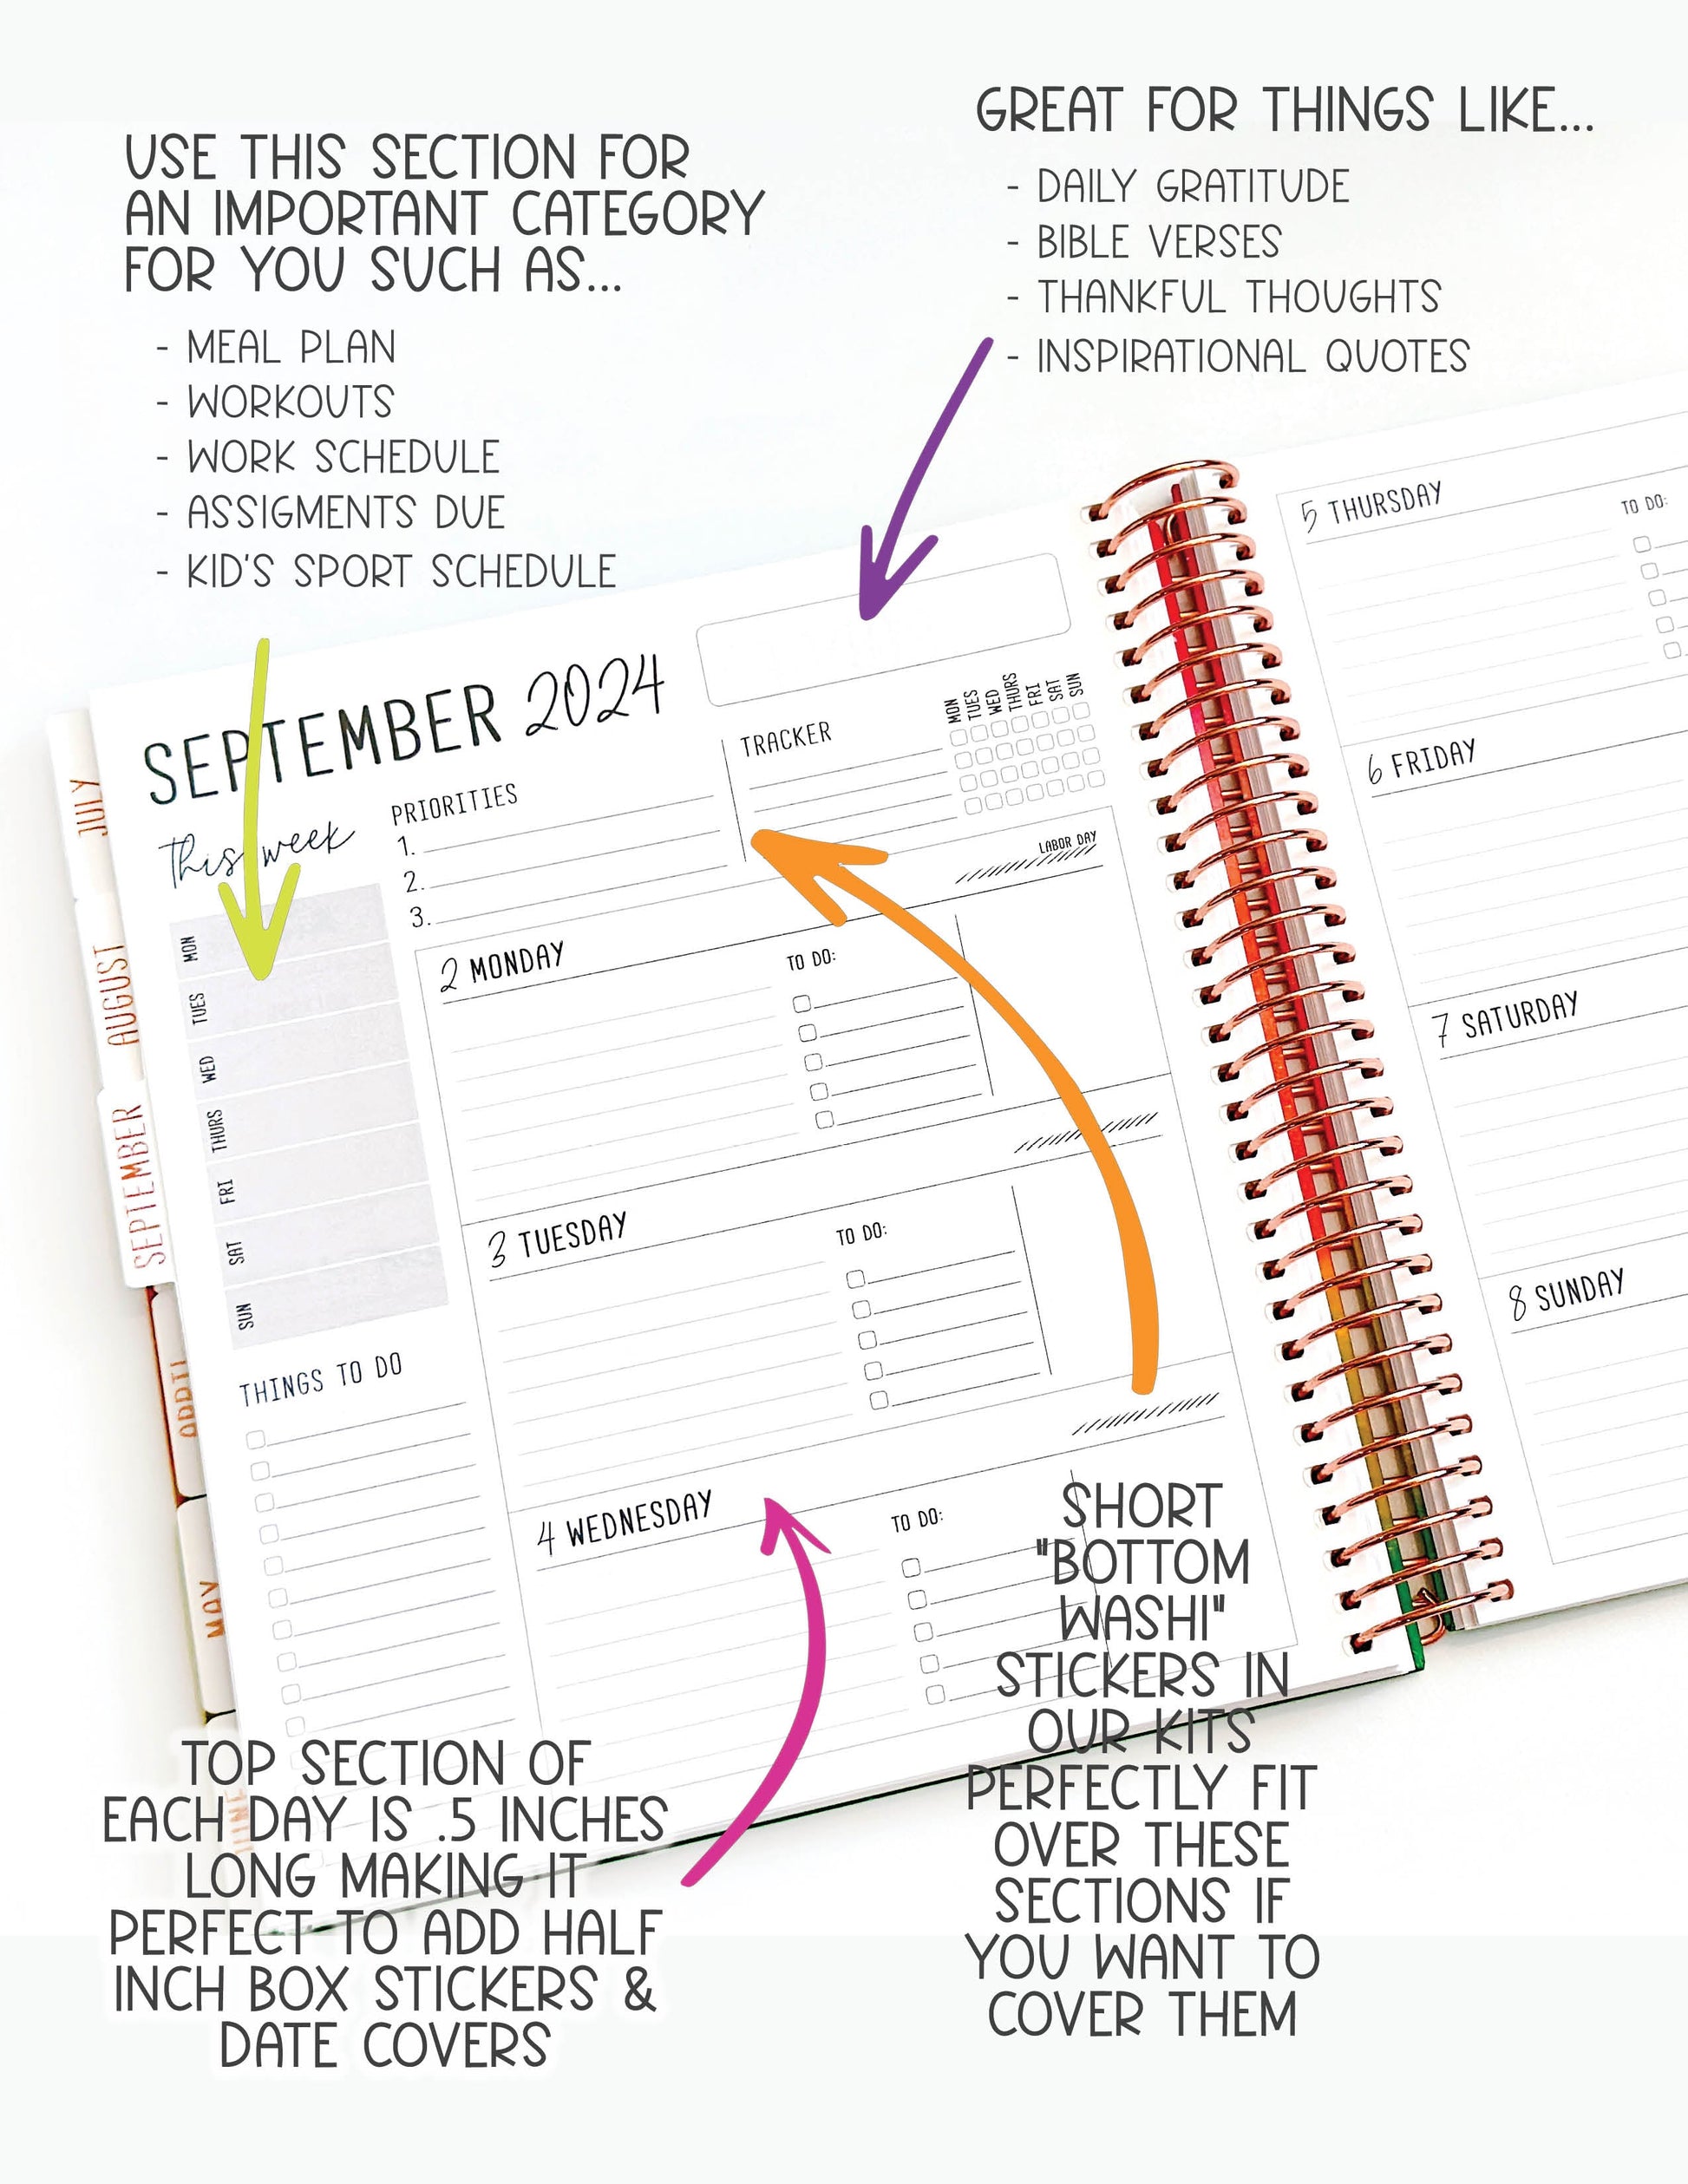 GREAT FOR THINGS LIKE...
- DAILY GRATITUDE
- BIBLE VERSES
- THANKFUL THOUGHTS
- INSPIRATIONAL QUOTES
USE THIS SECTION FOR
AN IMPORTANT CATEGORY
FOR YOU SUCH AS...
- MEAL PLAN
- WORKOUTS
- WORK SCHEDULE
- ASSIGMENTS DUE
- KID'S SPORT SCHEDULE
SEPTEMBER 2024
this week
MON
TUES
WED
THURS
FRI
SAT
SUN
THINGS TO DO
PRIORITIES
1.
2.
3.
TRACKER
MON
TUES
WED
THURS
FRI
SAT
SUN
LABOR DAY
2 MONDAY
TO DO:
3 TUESDAY
TO DO:
4 WEDNESDAY
TO DO:
5 THURSDAY
TO DO:
6 FRIDAY
7 SATURDAY
8 SUNDAY
JULY
AUGUST
SEPTEMBER
APRIL
MAY
JUNE
TOP SECTION OF
EACH DAY IS .5 INCHES
LONG MAKING IT
PERFECT TO ADD HALF
INCH BOX STICKERS &
DATE COVERS
SHORT
"BOTTOM
WASHI"
STICKERS IN
OUR KITS
PERFECTLY FIT
OVER THESE
SECTIONS IF
YOU WANT TO
COVER THEM